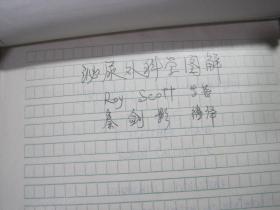 泌尿外科学图解
Roy Scott 等著
秦剑影 译